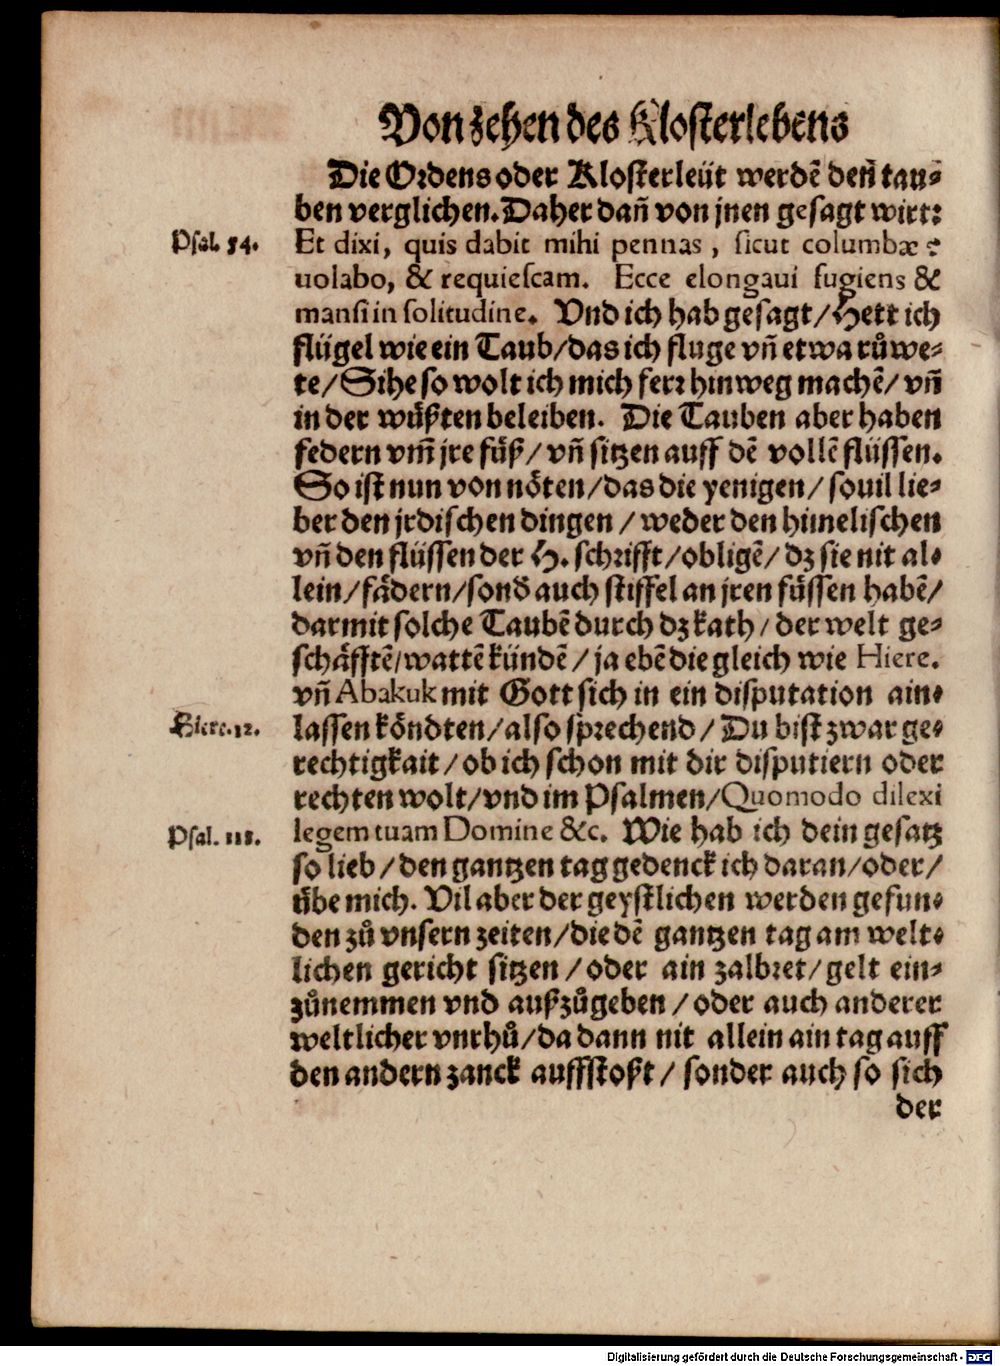 Von zehen des Klosterlebens
Die Ordens oder Klosterleüt werdẽ den̄ tau-
ben verglichen. Daher dañ von jnen gesagt wirt:
Psal. 54.
Et dixi, quis dabit mihi pennas, sicut columbæ ?
uolabo, & requiescam. Ecce elongaui fugiens &
mansi in solitudine. Vnd ich hab gesagt/Hett ich
flügel wie ein Taub/das ich fluge vñ etwa růwe-
te/Sihe so wolt ich mich ferr hinweg machẽ/vñ
in der wůßten beleiben. Die Tauben aber haben
federn vm̃ jre fůß/vñ sitzen auff dẽ vollẽ flüssen.
So ist nun von nöten/das die yenigen/souil lie-
ber den jrdischen dingen/weder den himelischen
vñ den flüssen der H. schrifft/obligẽ/dz sie nit al-
lein/fådern/sonď auch stiffel an jren füssen habẽ/
darmit solche Taubẽ durch dz kath/der welt ge-
schåfftẽ/wattẽ kündẽ/ja ebẽ die gleich wie Hiere.
vñ Abakuk mit Gott sich in ein disputation ain-
Hiere. 12.
lassen köndten/also sprechend/Du bist zwar ge-
rechtigkait/ob ich schon mit dir disputiern oder
rechten wolt/vnd im Psalmen/Quomodo dilexi
Psal. 118.
legem tuam Domine &c. Wie hab ich dein gesatz
so lieb/den gantzen tag gedenck ich daran/oder/
übe mich. Vil aber der geystlichen werden gefun-
den zů vnsern zeiten/die dẽ gantzen tag am welt-
lichen gericht sitzen/oder ain zalbret/gelt ein-
zůnemmen vnd außzůgeben/oder auch anderer
weltlicher vnrhů/da dann nit allein ain tag auff
den andern zanck auffstoßt/sonder auch so sich
der
Digitalisierung gefördert durch die Deutsche Forschungsgemeinschaft - DFG